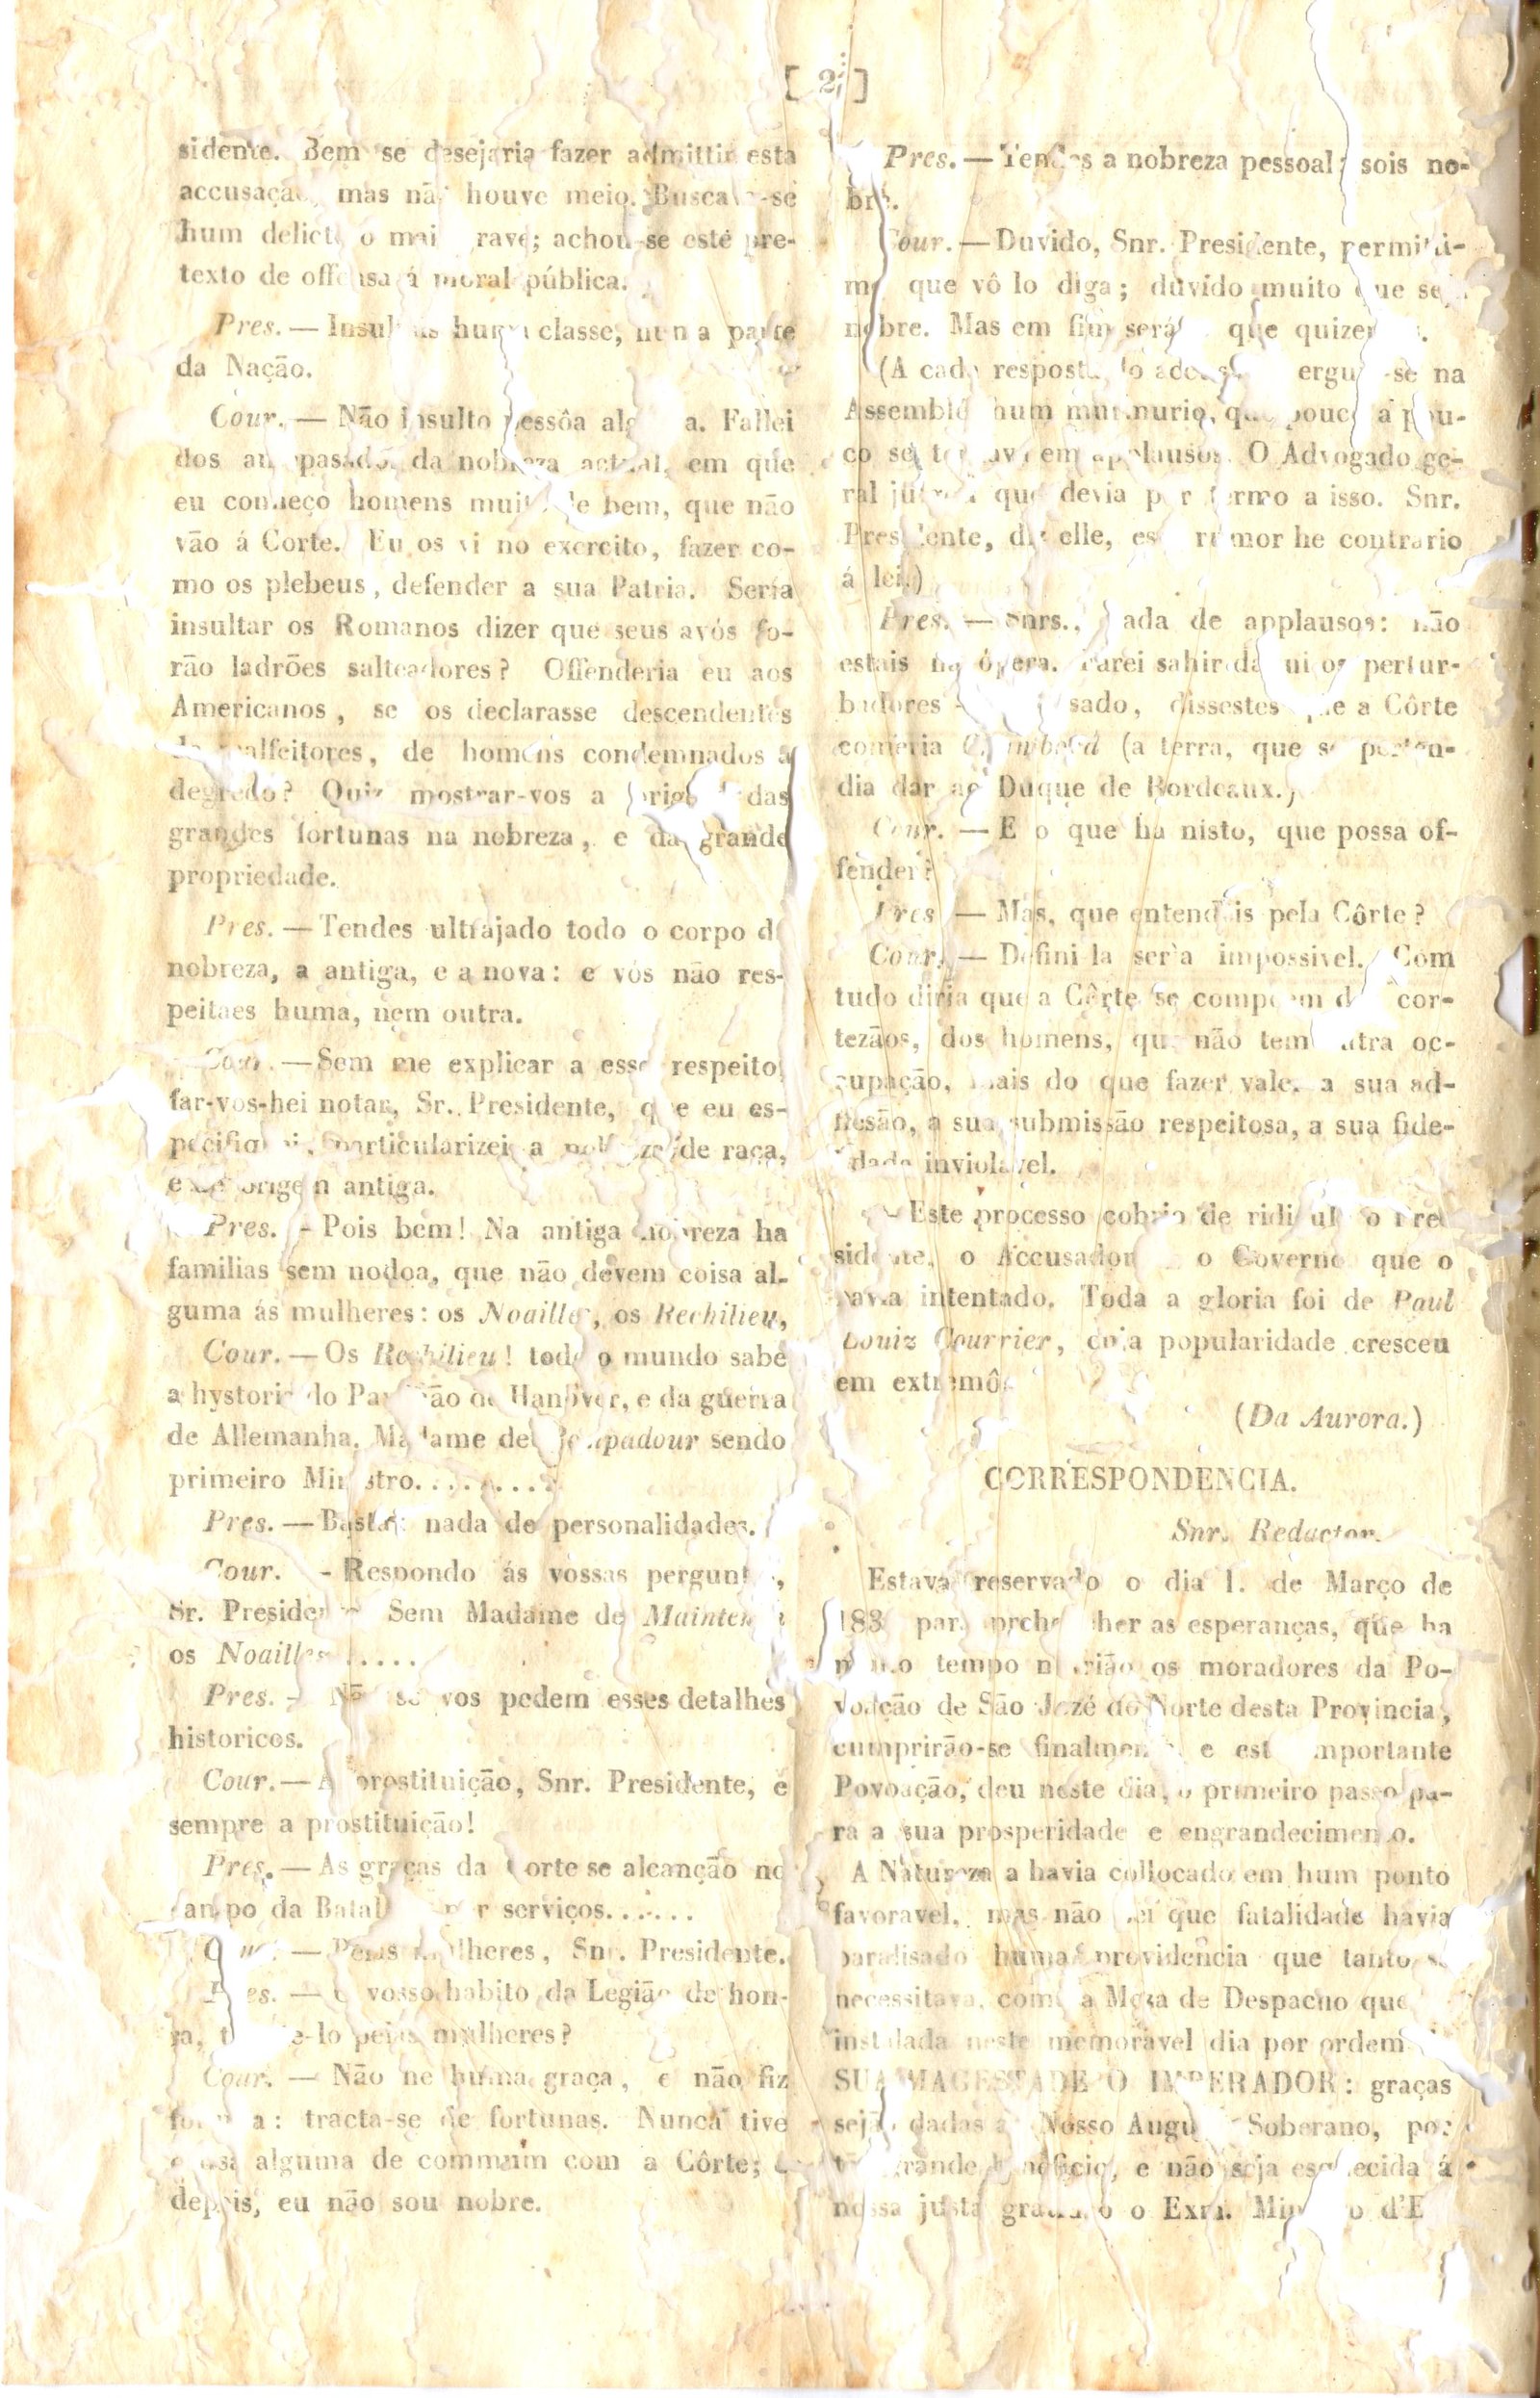 [ 2 ]
sidente. Bem se desejaria fazer admittir esta
accusação, mas não houve meio. Buscava-se
hum delicto mais grave; achou-se este pre-
texto de offensa á moral pública.
Pres. — Insultais huma classe, huma parte
da Nação.
Cour. — Não insulto pessôa alguma. Fallei
dos antepassados da nobreza actual, em que
eu conheço homens muito de bem, que não
vão á Corte. Eu os vi no exercito, fazer co-
mo os plebeus, defender a sua Patria. Seria
insultar os Romanos dizer que seus avós fo-
rão ladrões salteadores? Offenderia eu aos
Americanos, se os declarasse descendentes
de malfeitores, de homens condemnados a
degredo? Quiz mostrar-vos a origem das
grandes fortunas na nobreza, e da grande
propriedade.
Pres. — Tendes ultrajado todo o corpo da
nobreza, a antiga, e a nova: e vós não res-
peitaes huma, nem outra.
Cour. — Sem me explicar a esse respeito,
far-vos-hei notar, Sr. Presidente, que eu es-
pecifiquei, particularizei a nobreza de raça,
e origem antiga.
Pres. - Pois bem! Na antiga nobreza ha
familias sem nodoa, que não devem coisa al-
guma ás mulheres: os Noailles, os Rechilieu,
Cour. — Os Rechilieu! todo o mundo sabe
a hystoria do Pavilhão de Hanover, e da guerra
de Allemanha. Madame de Pompadour sendo
primeiro Ministro.........
Pres. — Basta: nada de personalidades.
Cour. - Respondo ás vossas perguntas,
Sr. Presidente Sem Madame de Maintenon
os Noailles.....
Pres. - Não se vos pedem esses detalhes
historicos.
Cour. — A prostituição, Snr. Presidente, e
sempre a prostituição!
Pres. — As graças da Corte se alcanção no
campo da Batalha por serviços......
Cour. — Pelas mulheres, Snr. Presidente.
Pres. — O vosso habito da Legião de hon-
ra, pelas mulheres?
Cour. — Não he huma graça, e não fiz
fortuna: tracta-se de fortunas. Nunca tive
coisa alguma de commuim com a Côrte; e
depois, eu não sou nobre.
Pres. — Tendes a nobreza pessoal; sois no-
bre.
Cour. — Duvido, Snr. Presidente, permitti-
me que vô lo diga; duvído muito que seja
nobre. Mas em fim será o que quizer
(A cada resposta do accusado erguia-se na
Assembléa hum murmurio, que pouco a pou-
co se tornava em applausos. O Advogado ge-
ral julgou que devia pôr termo a isso. Snr.
Presidente, diz elle, esse rumor he contrario
á lei.)
Pres. — Snrs., nada de applausos: não
estais na ópera. Farei sahir daqui os pertur-
badores - sado, dissestes que a Côrte
comeria Chambord (a terra, que se perten-
dia dar ao Duque de Bordeaux.)
Cour. — E o que ha nisto, que possa of-
fender?
Pres — Mas, que entendeis pela Côrte?
Cour. — Defini-la seria impossivel. Com
tudo diria que a Côrte se compoem dos cor-
tezãos, dos homens, que não tem outra oc-
cupação, mais do que fazer valer a sua ad-
hesão, a sua submissão respeitosa, a sua fide-
lidade inviolavel.
— Este processo cobrio de ridiculo o Pre-
sidente, o Accusador o Governo que o
havia intentado. Toda a gloria foi de Paul
Louiz Courrier, cuja popularidade cresceu
em extremô.
(Da Aurora.)
CORRESPONDENCIA.
Snr. Redactor.
Estava reservado o dia 1. de Março de
183 para prehencher as esperanças, que ha
muito tempo nutrião os moradores da Po-
voação de São Jozé do Norte desta Provincia,
cumprirão-se finalmente, e esta importante
Povoação, deu neste dia, o primeiro passo pa-
ra a sua prosperidade e engrandecimento.
A Natureza a havia collocado em hum ponto
favoravel, mas não sei que fatalidade havia
paralisado huma providencia que tanto se
necessitava, como a Meza de Despacho que
instalada neste memoravel dia por ordem
SUA MAGESTADE O IMPERADOR: graças
sejão dadas a Nosso Augusto Soberano, por
tão grande beneficio, e não seja esquecida á
nossa justa gratidão o Exm. Ministro d'E